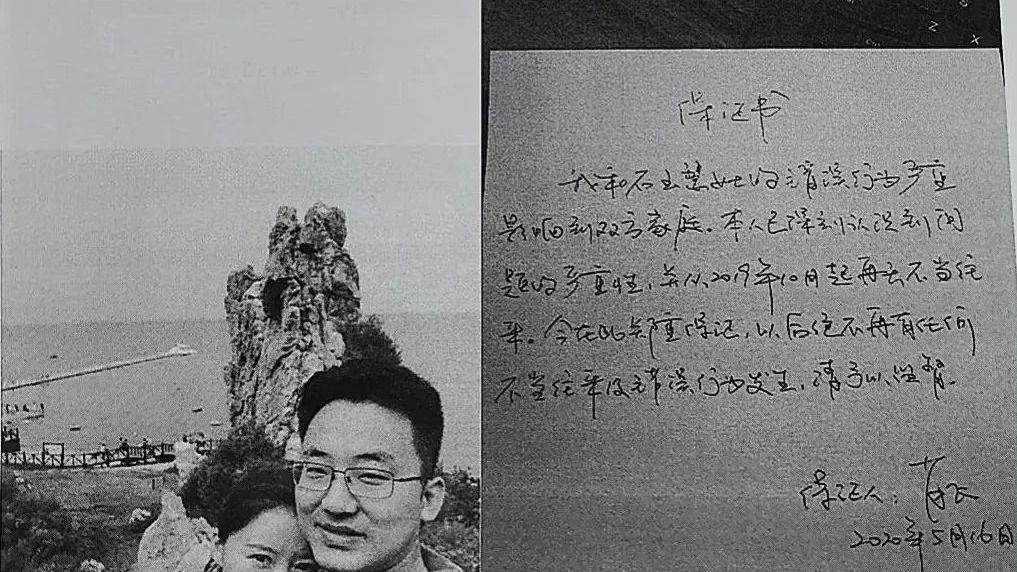 保证书
我和石玉慧女士的错误行为严重
影响到双方家庭。本人已深刻认识到问
题的严重性，并从2019年10月起再无不当往
来。今在此郑重保证，以后绝不再有任何
不当往来及错误行为发生，请予以监督。
保证人：
2020年5月16日
Z
X